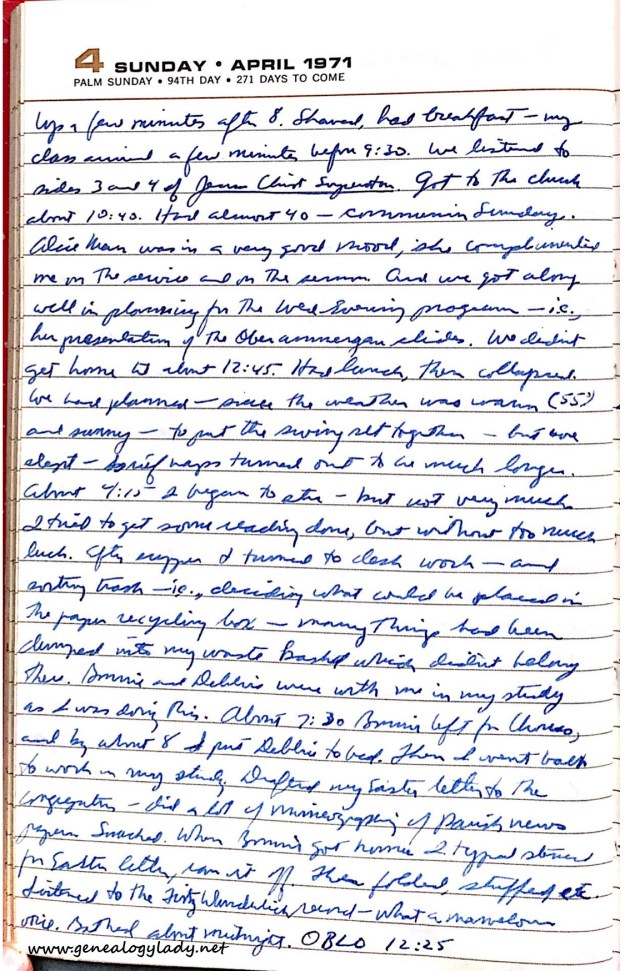 4 SUNDAY • APRIL 1971
PALM SUNDAY • 94TH DAY • 271 DAYS TO COME
Up a few minutes after 8. Shaved, had breakfast – my
class arrived a few minutes before 9:30. We listened to
sides 3 and 4 of Jesus Christ Superstar. Got to the church
about 10:40. Had almost 40 – communion Sunday.
Alice Man was in a very good mood, she complimented
me on the service and on the sermon. And we got along
well in planning for the Wed Evening program – i.e.,
her presentation of the Oberammergau slides. We didn't
get home til about 12:45. Had lunch, then collapsed.
We had planned – since the weather was warm (55°)
and sunny – to put the swing set together – but we
slept – brief naps turned out to be much longer.
About 4:15 I began to stir – but not very much
I tried to get some reading done, but without too much
luck. After supper I turned to desk work – and
sorting trash – i.e., deciding what could be placed in
the paper recycling box – many things had been
dumped into my waste basket which didn't belong
there. Bonnie and Debbie were with me in my study
as I was doing this. About 7:30 Bonnie left for Chorus,
and by about 8 I put Debbie to bed. Then I went back
to work in my study. Drafted my Easter letter to the
congregation – did a lot of mimeographing of Parish news
papers. Snacked. When Bonnie got home I typed stencil
for Easter letter, ran it off. Then folded, stuffed etc.
Listened to the Fritz Wunderlich record – what a marvelous
voice. Bathed about midnight. OBLO 12:25
www.genealogylady.net